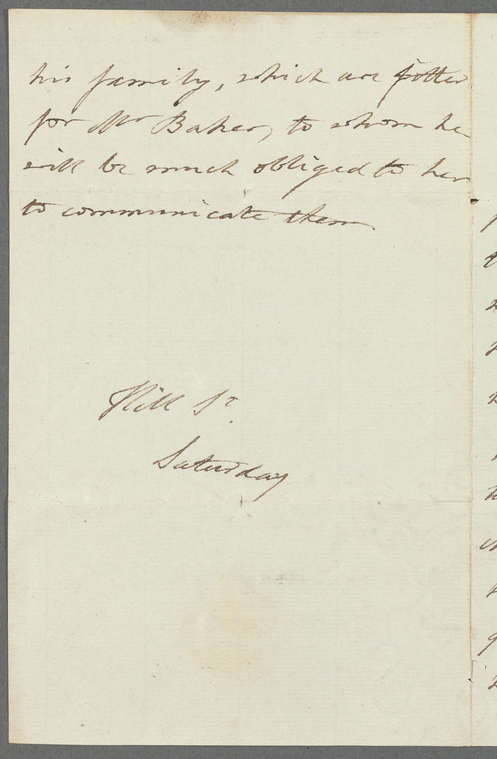 his family, which are
for Mr Baker, to whom he
will be much obliged to her
to communicate them.
Hill St
Saturday